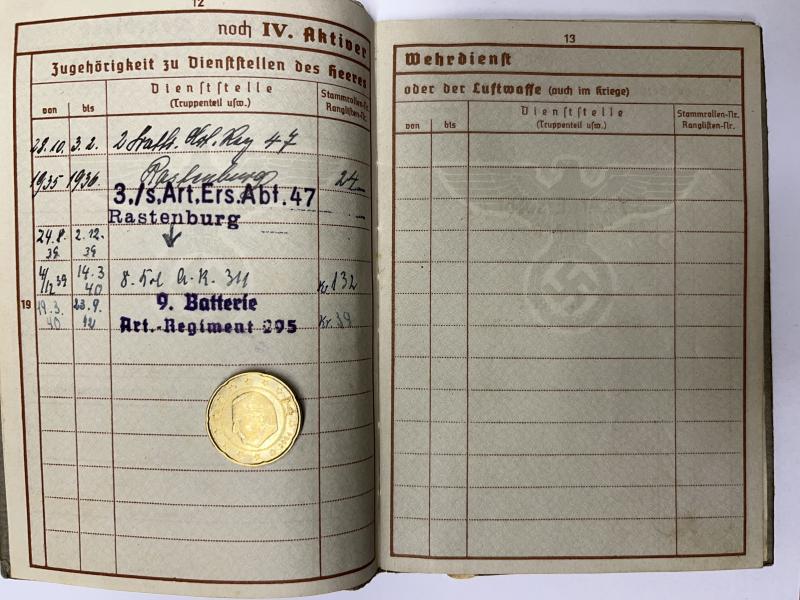 12
noch IV. Aktiver
Zugehörigkeit zu Dienststellen des Heeres
von
bis
Dienststelle
(Truppenteil usw.)
Stammrollen-Nr.
Ranglisten-Nr.
28.10. 3.2. 47
1935 1936 Rastenburg 24
3./s.Art.Ers.Abt.47
Rastenburg
24.8. 2.12.
39 39
14.3
12 39 40 8. A.R. 311 132
19
19.3. 23.9. 9. Batterie
40 Art.-Regiment 295 39
13
Wehrdienst
oder der Luftwaffe (auch im Kriege)
von
bis
Dienststelle
(Truppenteil usw.)
Stammrollen-Nr.
Ranglisten-Nr.